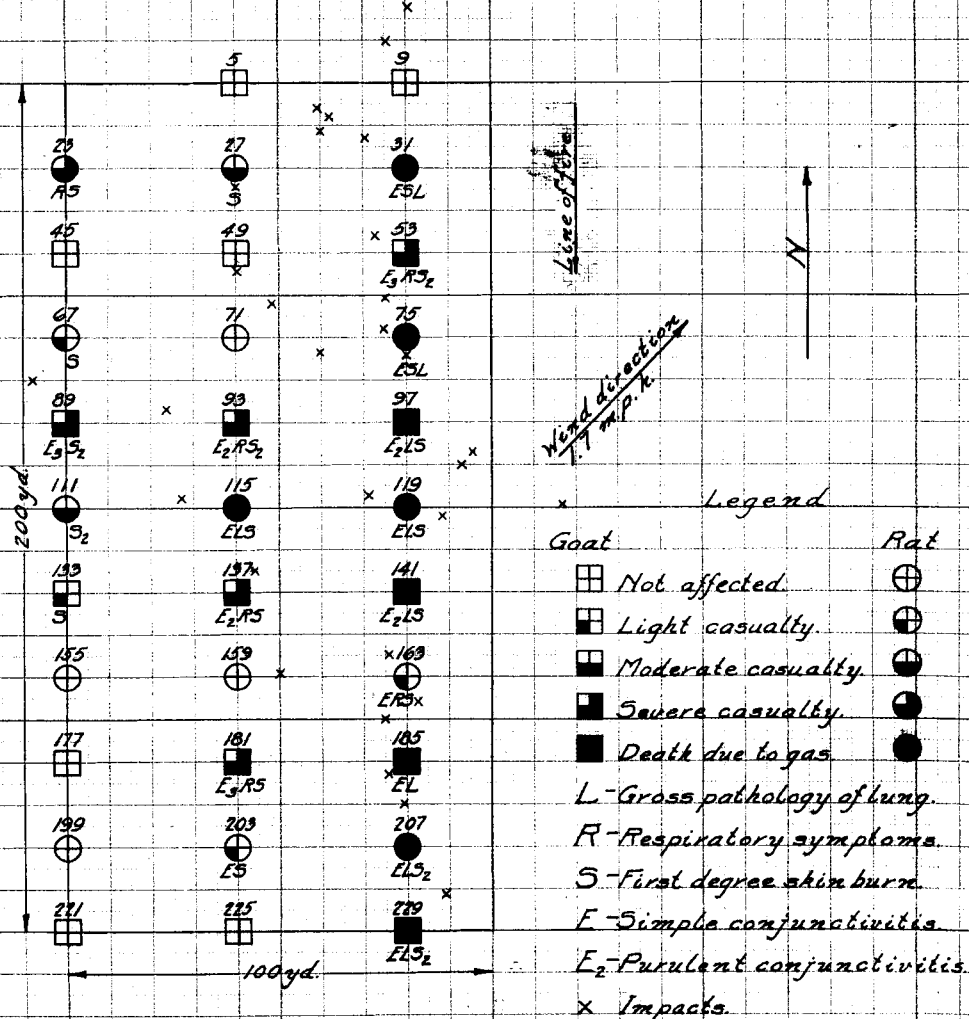 5 9
23 27 31
RS S ESL
45 49 53
E3RS2
67 71 75
S ESL
89 93 97
E3S2 E2RS2 E2LS
111 115 119
S2 ELS ELS
133 137 141
S E2RS E2LS
155 159 163
ERS
177 181 185
E3RS EL
199 203 207
ES ELS2
221 225 229
ELS2
200 yd.
100 yd.
Line of fire
N
Wind direction
1.7 m.p.h.
Legend
Goat Rat
Not affected.
Light casualty.
Moderate casualty.
Severe casualty.
Death due to gas
L-Gross pathology of lung.
R-Respiratory symptoms.
S-First degree skin burn.
E-Simple conjunctivitis.
E2-Purulent conjunctivitis.
x Impacts.